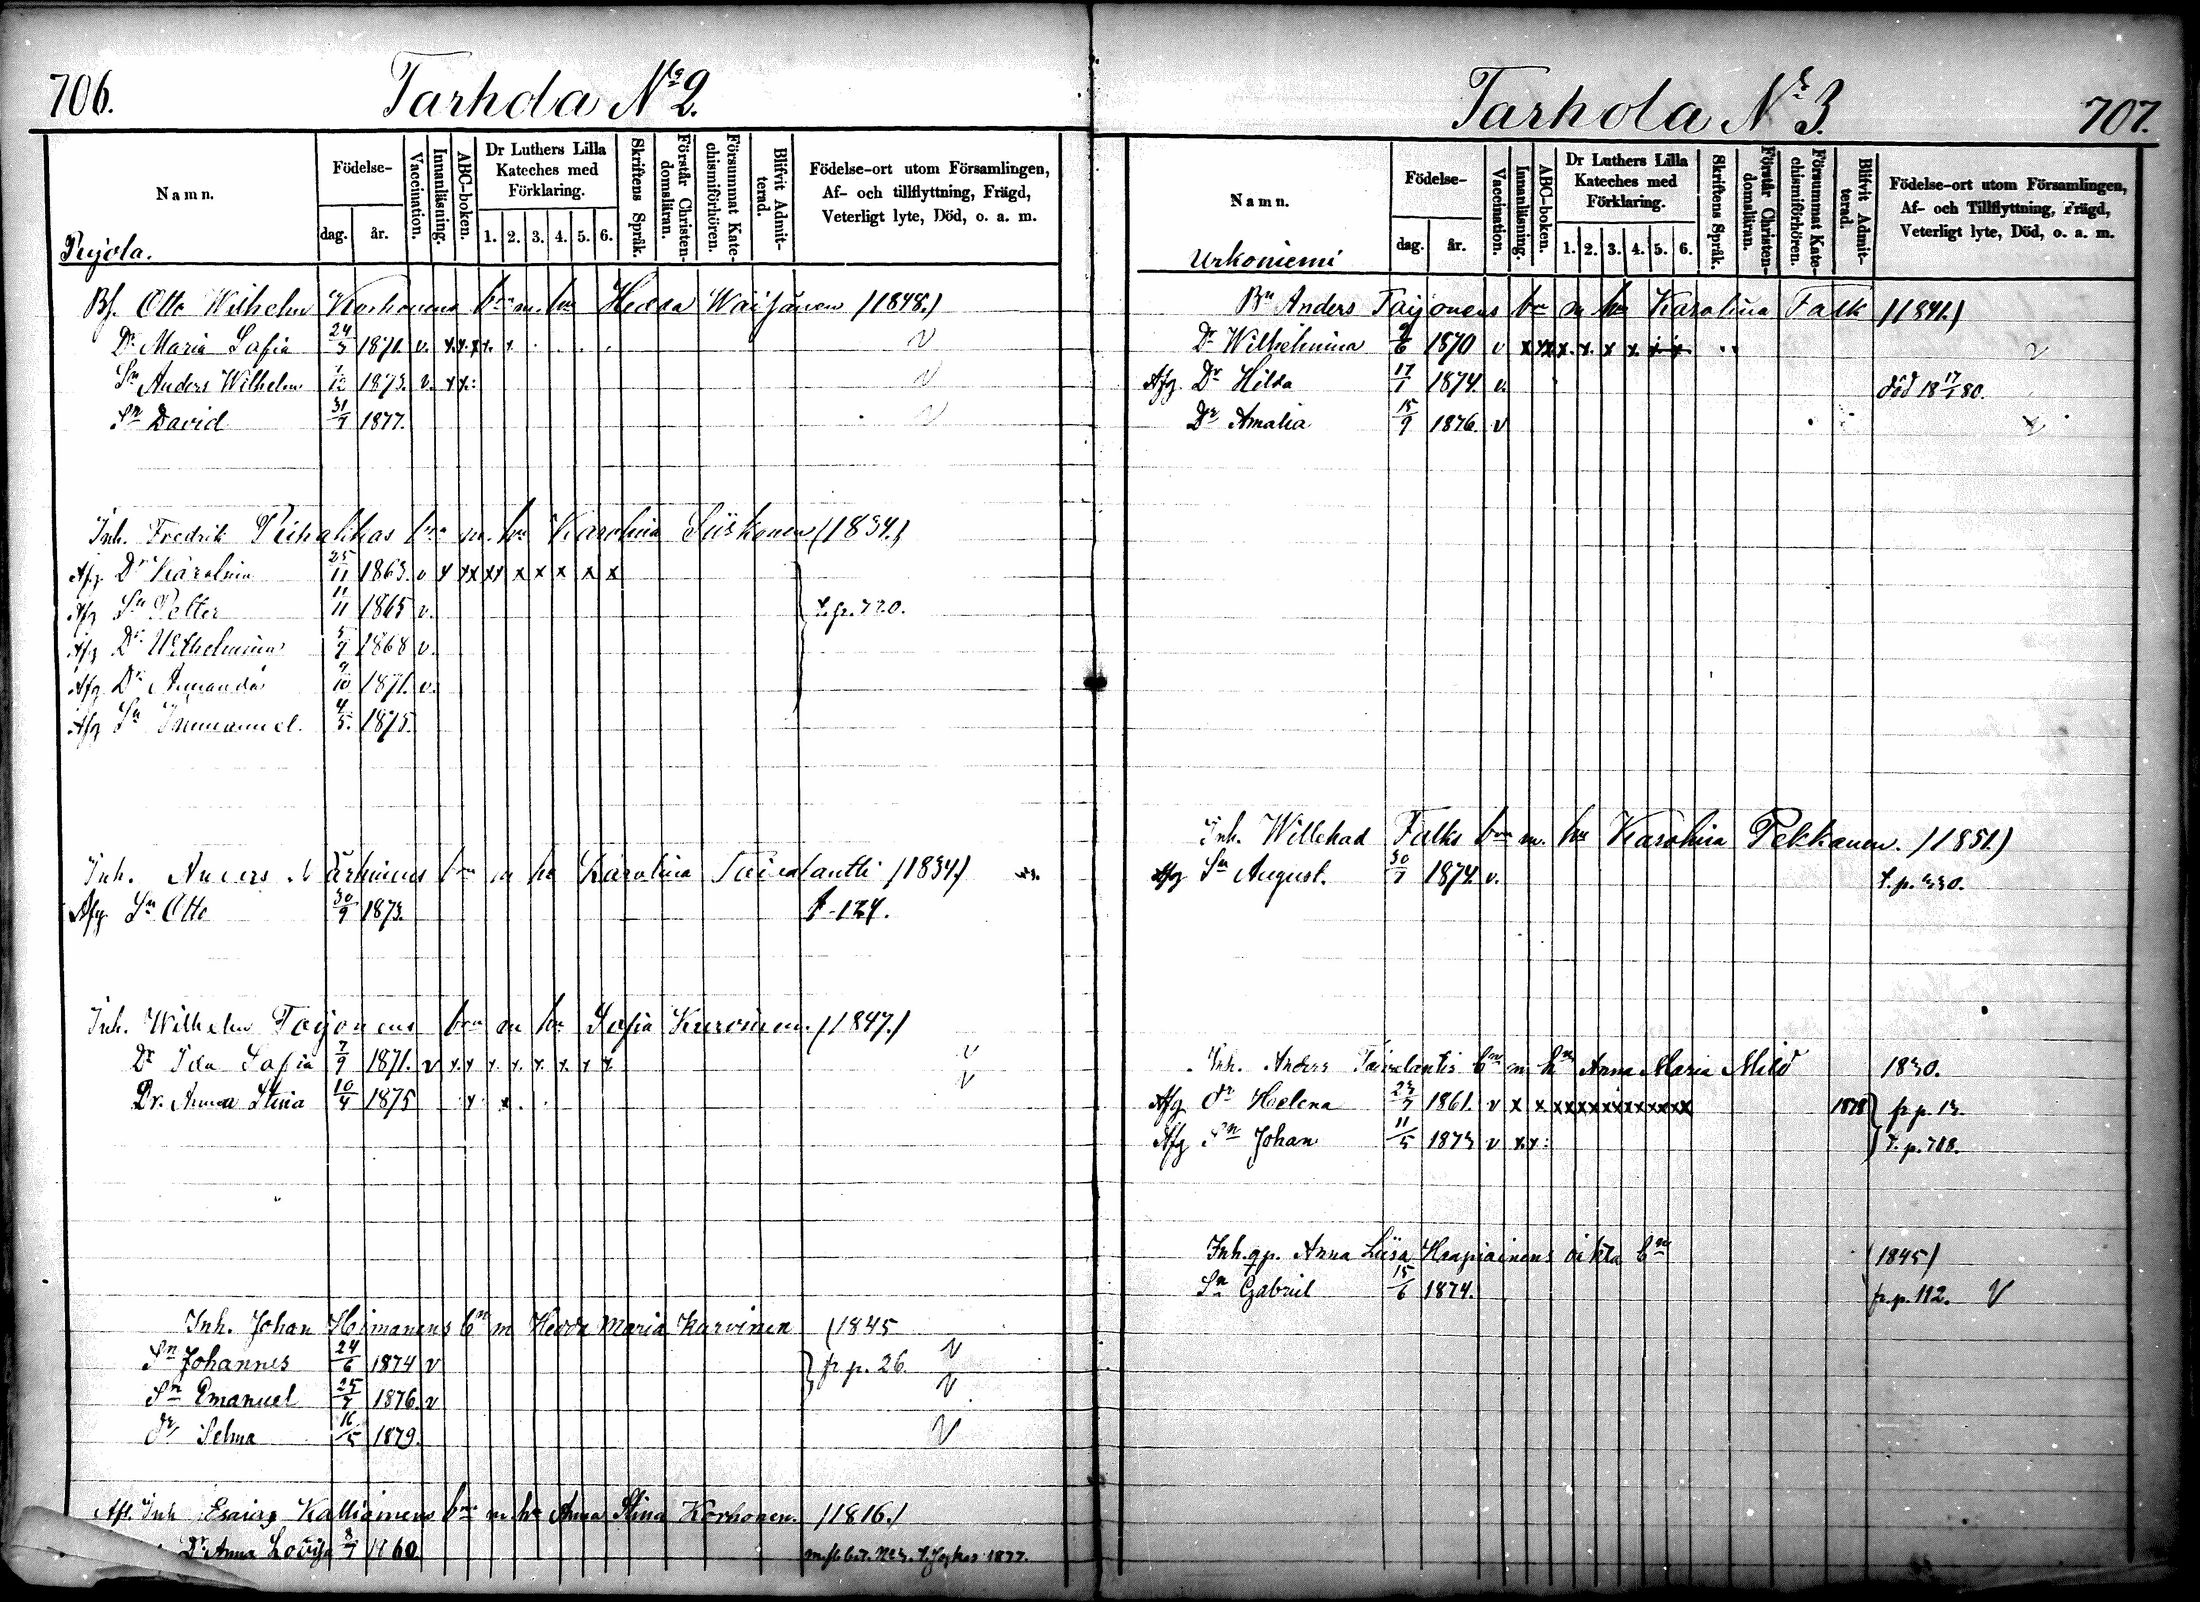 706.
Tarhola N:o 2.
Namn.
Födelse-
dag.
år.
Vaccination.
Innanläsning.
ABC-boken.
Dr Luthers Lilla Kateches med Förklaring.
1. 2. 3. 4. 5. 6.
Skriftens Språk.
Förstår Christen-domsläran.
Försummat Kate-chismiförhören.
Blifvit Admit-terad.
Födelse-ort utom Församlingen, Af- och tillflyttning, Frägd, Veterligt lyte, Död, o. a. m.
Otto Wilhelm Korhonens bn m. hu Hedda Wäisänen (1848.)
Dr Maria Sofia 24/3 1871. v. x x x x. x
Sn Anders Wilhelm 1/12 1873. v. x x:
Sn David 1877.
Inh. Fredrik bn m. hu Karolina Siiskonen (1834.)
Afg Dr Karolina 25/11 1863. v x x x x x x x x x x
Afg Sn Petter 11/11 1865 v. t. p. 720.
Afg Dr Wilhelmina 1868 v.
Afg Dr Amanda 9/10 1871. v.
Afg Sn Immanuel. 4/5. 1875.
Inh. Anders Kärhinens bn m hu Karolina Taivalantti (1834.)
Afg. Sn Otto 30/9 1873. 124.
Inh. Wilhelm Taijonens bn m hu Sofia Kurvinen. (1847.)
Dr Ida Sofia 7/9 1871. v x x x x. x x x x
Dr. Anna Stina 10/4 1875 x x
Inh. Johan bn m Hedda Maria Karvinen (1845
Sn Johannes 24/6 1874 v fr. p. 26. v
Sn Emanuel 1876. v v
Dr Selma 16/5 1879. v
Inh Esaias Kalliainens bn m hu Anna Stina Korhonen. (1816.)
Dr Anna Lovisa 1860. 1877.
Tarhola N:r 3.
707.
Namn.
Födelse-
dag.
år.
Vaccination.
Innanläsning.
ABC-boken.
Dr Luthers Lilla Kateches med Förklaring.
1. 2. 3. 4. 5. 6.
Skriftens Språk.
Förstår Christen-domsläran.
Försummat Kate-chismiförhören.
Blifvit Admit-terad.
Födelse-ort utom Församlingen, Af- och Tillflyttning, Frägd, Veterligt lyte, Död, o. a. m.
Urkoniemi
Bn Anders Taijonens bn m hu Karolina Falk (1841.)
Dr Wilhelmina 1870 v x x x x. x. x x. x x
Afg. Dr Hilda 17/1 1874. v. död 18 17/1 80.
Dr Amalia 15/9 1876. v
Inh. Willehad Falks bn m. hu Karolina Pekkanen. (1851.)
Afg Sn August. 1874. v.
Inh. Anders Taivalantis bn m hn Anna Maria Mild 1830.
Afg dr Helena 1861. v x x x x x x x x x x x x 1878 fr p. 13.
Afg Sn Johan 11/5 1873 v x x: t. p. 708.
Inh. Anna Liisa Haapiainens oäkta bn (1845)
Sn Gabriel 15/6 1874. fr. p. 112. v